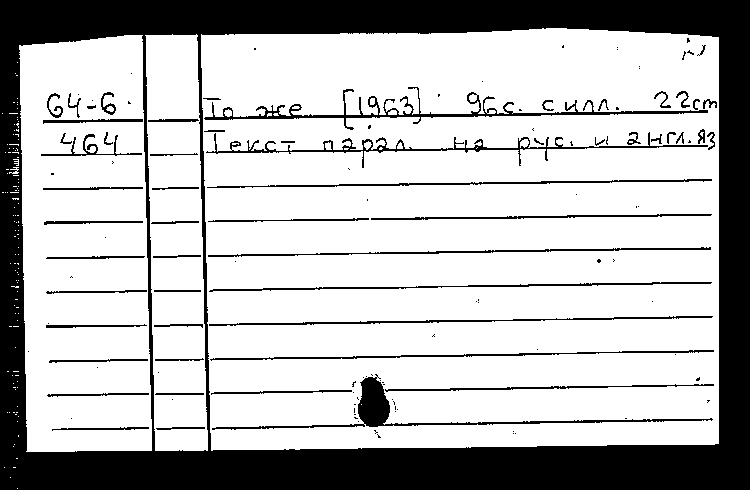 64-6 То же [1963]. 96с. с илл. 22cm
464 Текст парал. на рус. и англ. яз